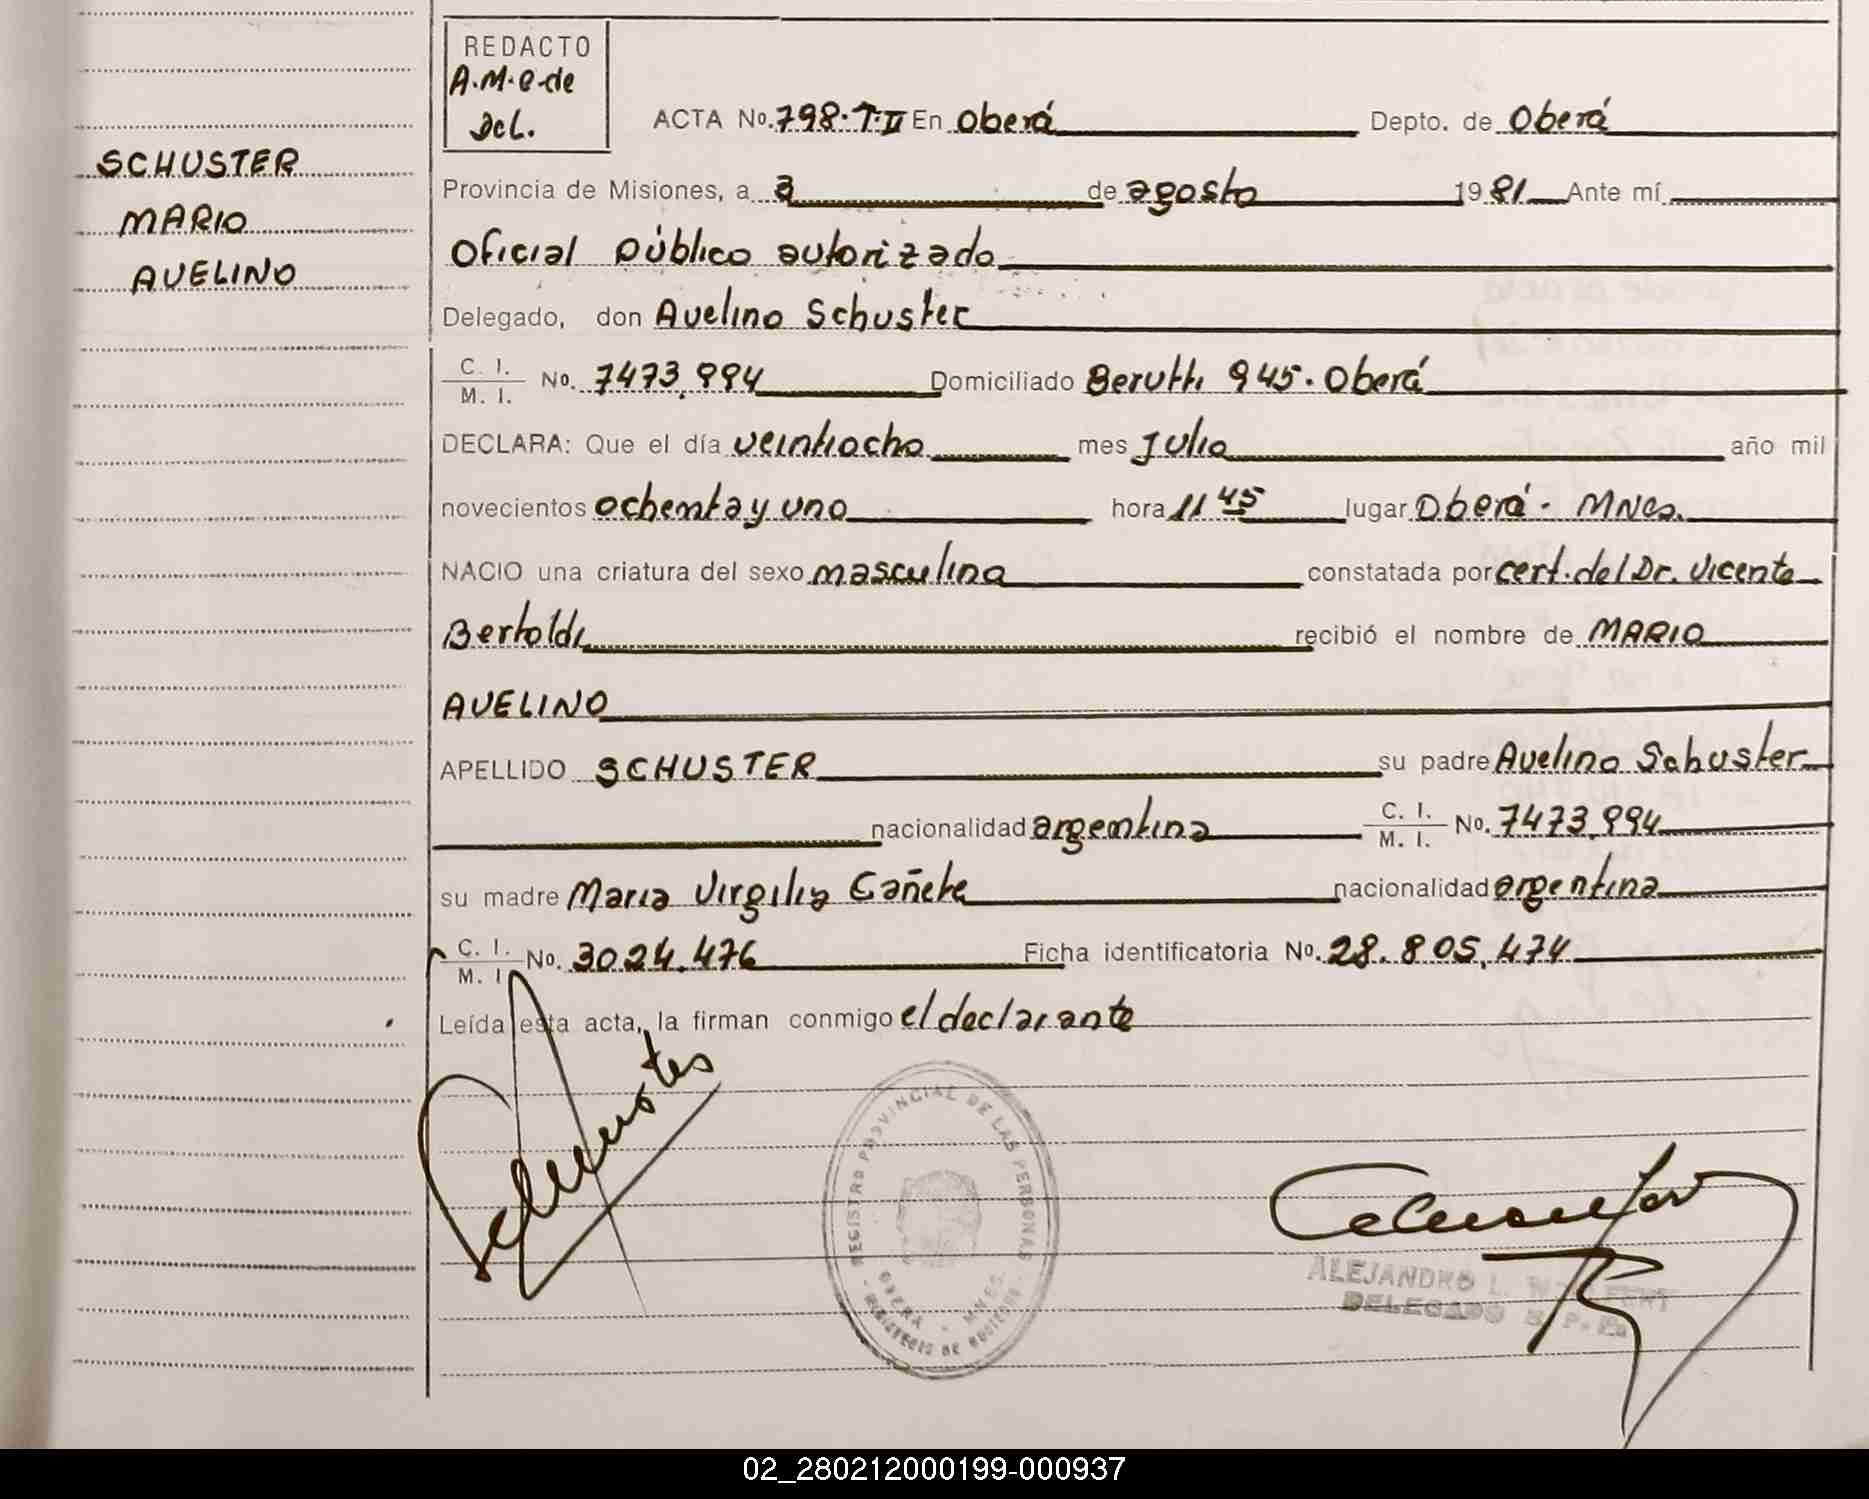 REDACTO
A.M.e de
Dcl.
ACTA No. 798. T. II En Oberá Depto. de Oberá
SCHUSTER
MARIO
AVELINO
Provincia de Misiones, a de agosto 1981 Ante mí
Oficial público autorizado
Delegado, don Avelino Schuster
C. I.
M. I. No. 7473.994 Domiciliado Berutti 945. Oberá
DECLARA: Que el día veintiocho mes Julio año mil
novecientos ochenta y uno hora 11 45 lugar Oberá - MNes.
NACIO una criatura del sexo masculino constatada por cert. del Dr. Vicente
Bertoldi recibió el nombre de MARIO
AVELINO
APELLIDO SCHUSTER su padre Avelino Schuster
nacionalidad argentina C. I.
M. I. No. 7473.994
su madre Maria Virgilia Cañete nacionalidad argentina
C. I.
M. I. No. 3024.476 Ficha identificatoria No. 28.805.474
Leída esta acta, la firman conmigo el declarante
REGISTRO PROVINCIAL DE LAS PERSONAS
OBERA - MNES.
MINISTERIO DE
ALEJANDRO L.
DELEGADO R. P. P.
02_280212000199-000937